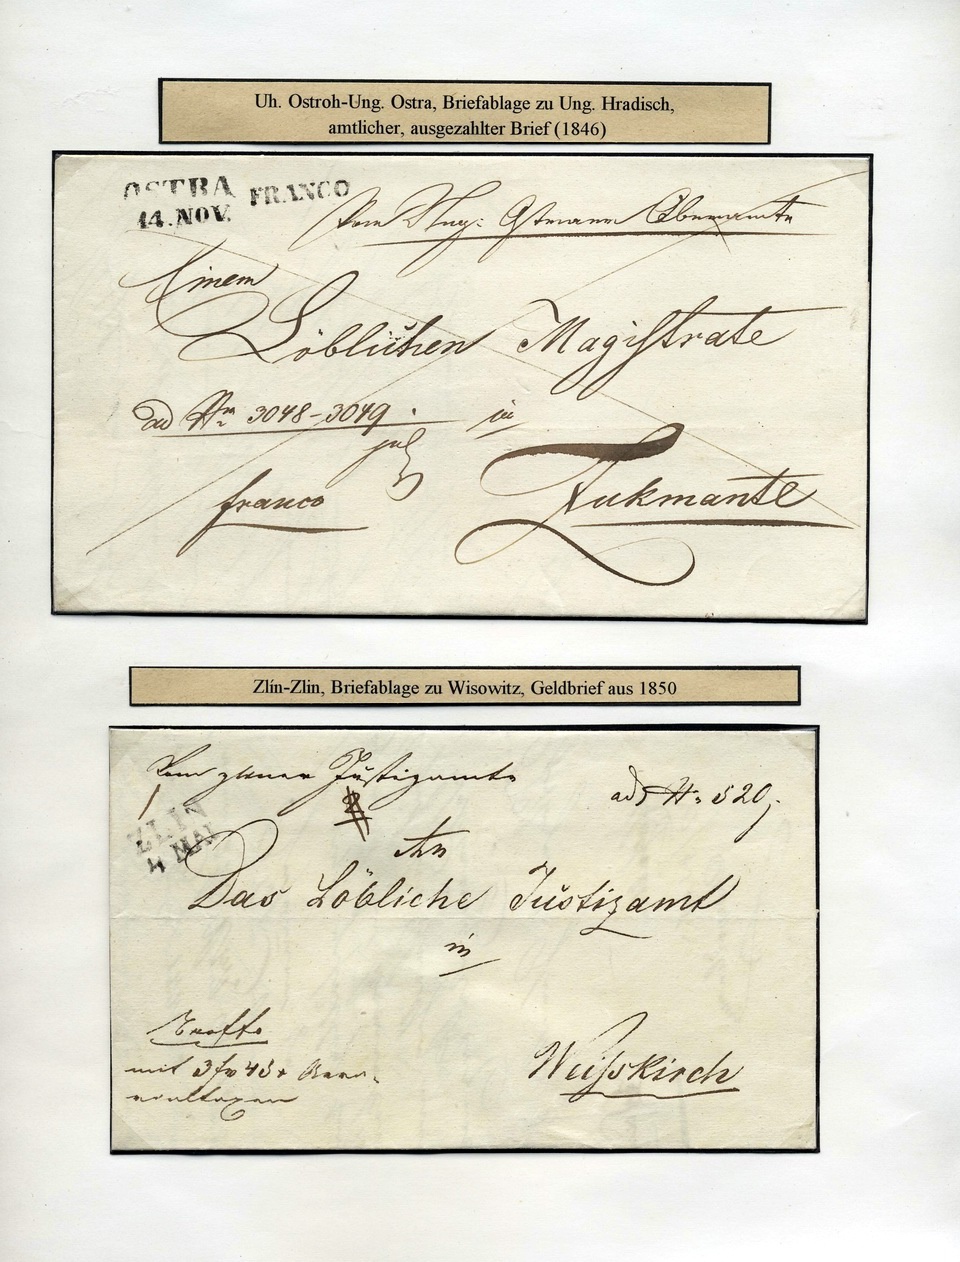 Uh. Ostroh-Ung. Ostra, Briefablage zu Ung. Hradisch,
amtlicher, ausgezahlter Brief (1846)
OSTRA FRANCO
14. NOV.
Vom Ung: Ostraer Oberamte
Einem
Löblichen Magistrate
ad Nrn 3048-3049. in
franco Zukmantl
Zlín-Zlin, Briefablage zu Wisowitz, Geldbrief aus 1850
Vom Justizamte
ad No 520,
ZLIN
4 MAI
An
Das Löbliche Justizamt
in
mit 3 f 43 x
Weißkirch